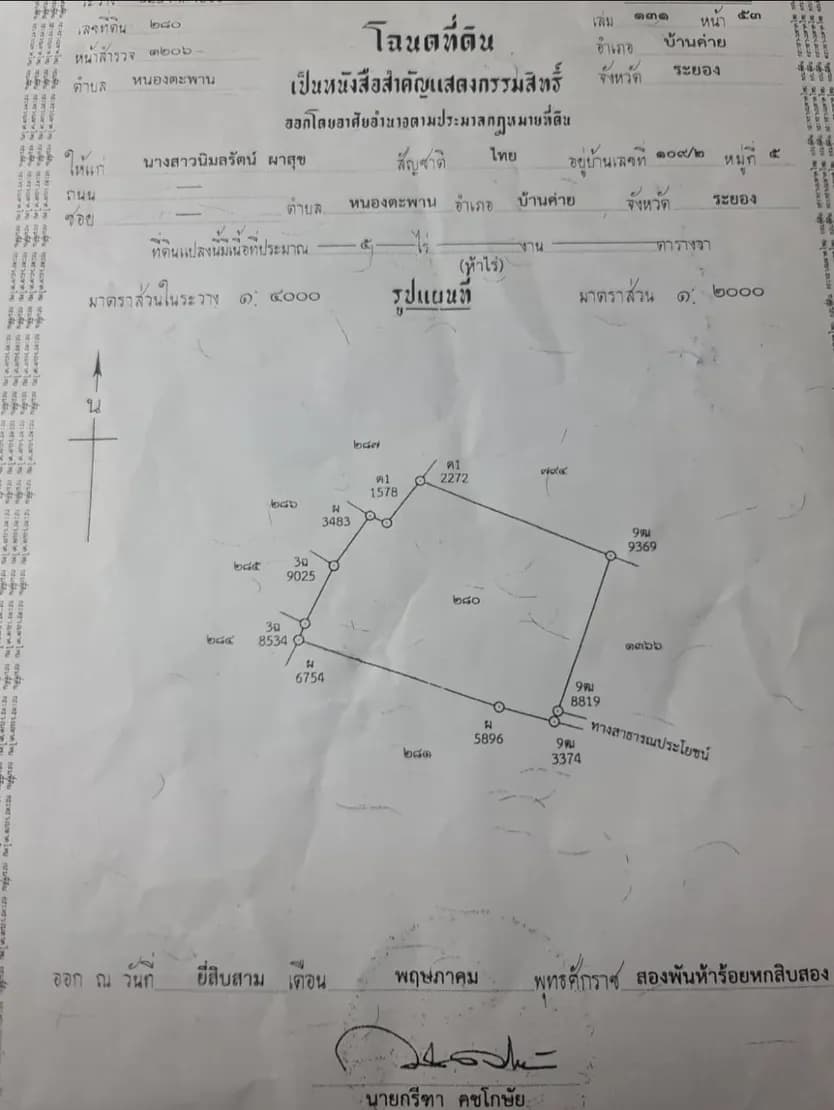 เลขที่ดิน ๒๘๐
หน้าสำรวจ ๓๒๐๖
ตำบล หนองตะพาน
โฉนดที่ดิน
เป็นหนังสือสำคัญแสดงกรรมสิทธิ์
ออกโดยอาศัยอำนาจตามประมวลกฎหมายที่ดิน
เล่ม ๑๓๑ หน้า ๕๓
อำเภอ บ้านค่าย
จังหวัด ระยอง
ให้แก่ นางสาวนิมลรัตน์ ผาสุข สัญชาติ ไทย อยู่บ้านเลขที่ ๑๐๙/๒ หมู่ที่ ๕
ถนน —
ซอย — ตำบล หนองตะพาน อำเภอ บ้านค่าย จังหวัด ระยอง
ที่ดินแปลงนี้มีเนื้อที่ประมาณ — ๕ — ไร่ — งาน — ตารางวา
(ห้าไร่)
มาตราส่วนในระวาง ๑: ๔๐๐๐ รูปแผนที่ มาตราส่วน ๑: ๒๐๐๐
น
๒๘๗
ค1
2272
๗๙๔
ค1
1578
๒๘๖
ผ
3483
9ฒ
9369
๒๘๕
3ฉ
9025
๒๘๐
๒๘๔
3ฉ
8534
๑๓๖๖
ผ
6754
9ฒ
8819
ทางสาธารณประโยชน์
ผ
5896
9ฒ
3374
๒๘๑
ออก ณ วันที่ ยี่สิบสาม เดือน พฤษภาคม พุทธศักราช สองพันห้าร้อยหกสิบสอง
นายกรีฑา คชโกษัย